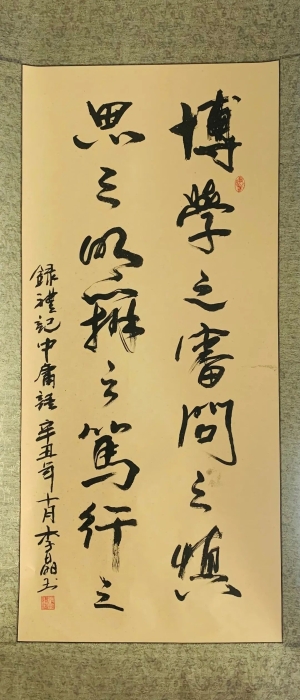 博學之審問之慎
思之明辨之篤行之
錄禮記中庸語辛丑年十月李晶书